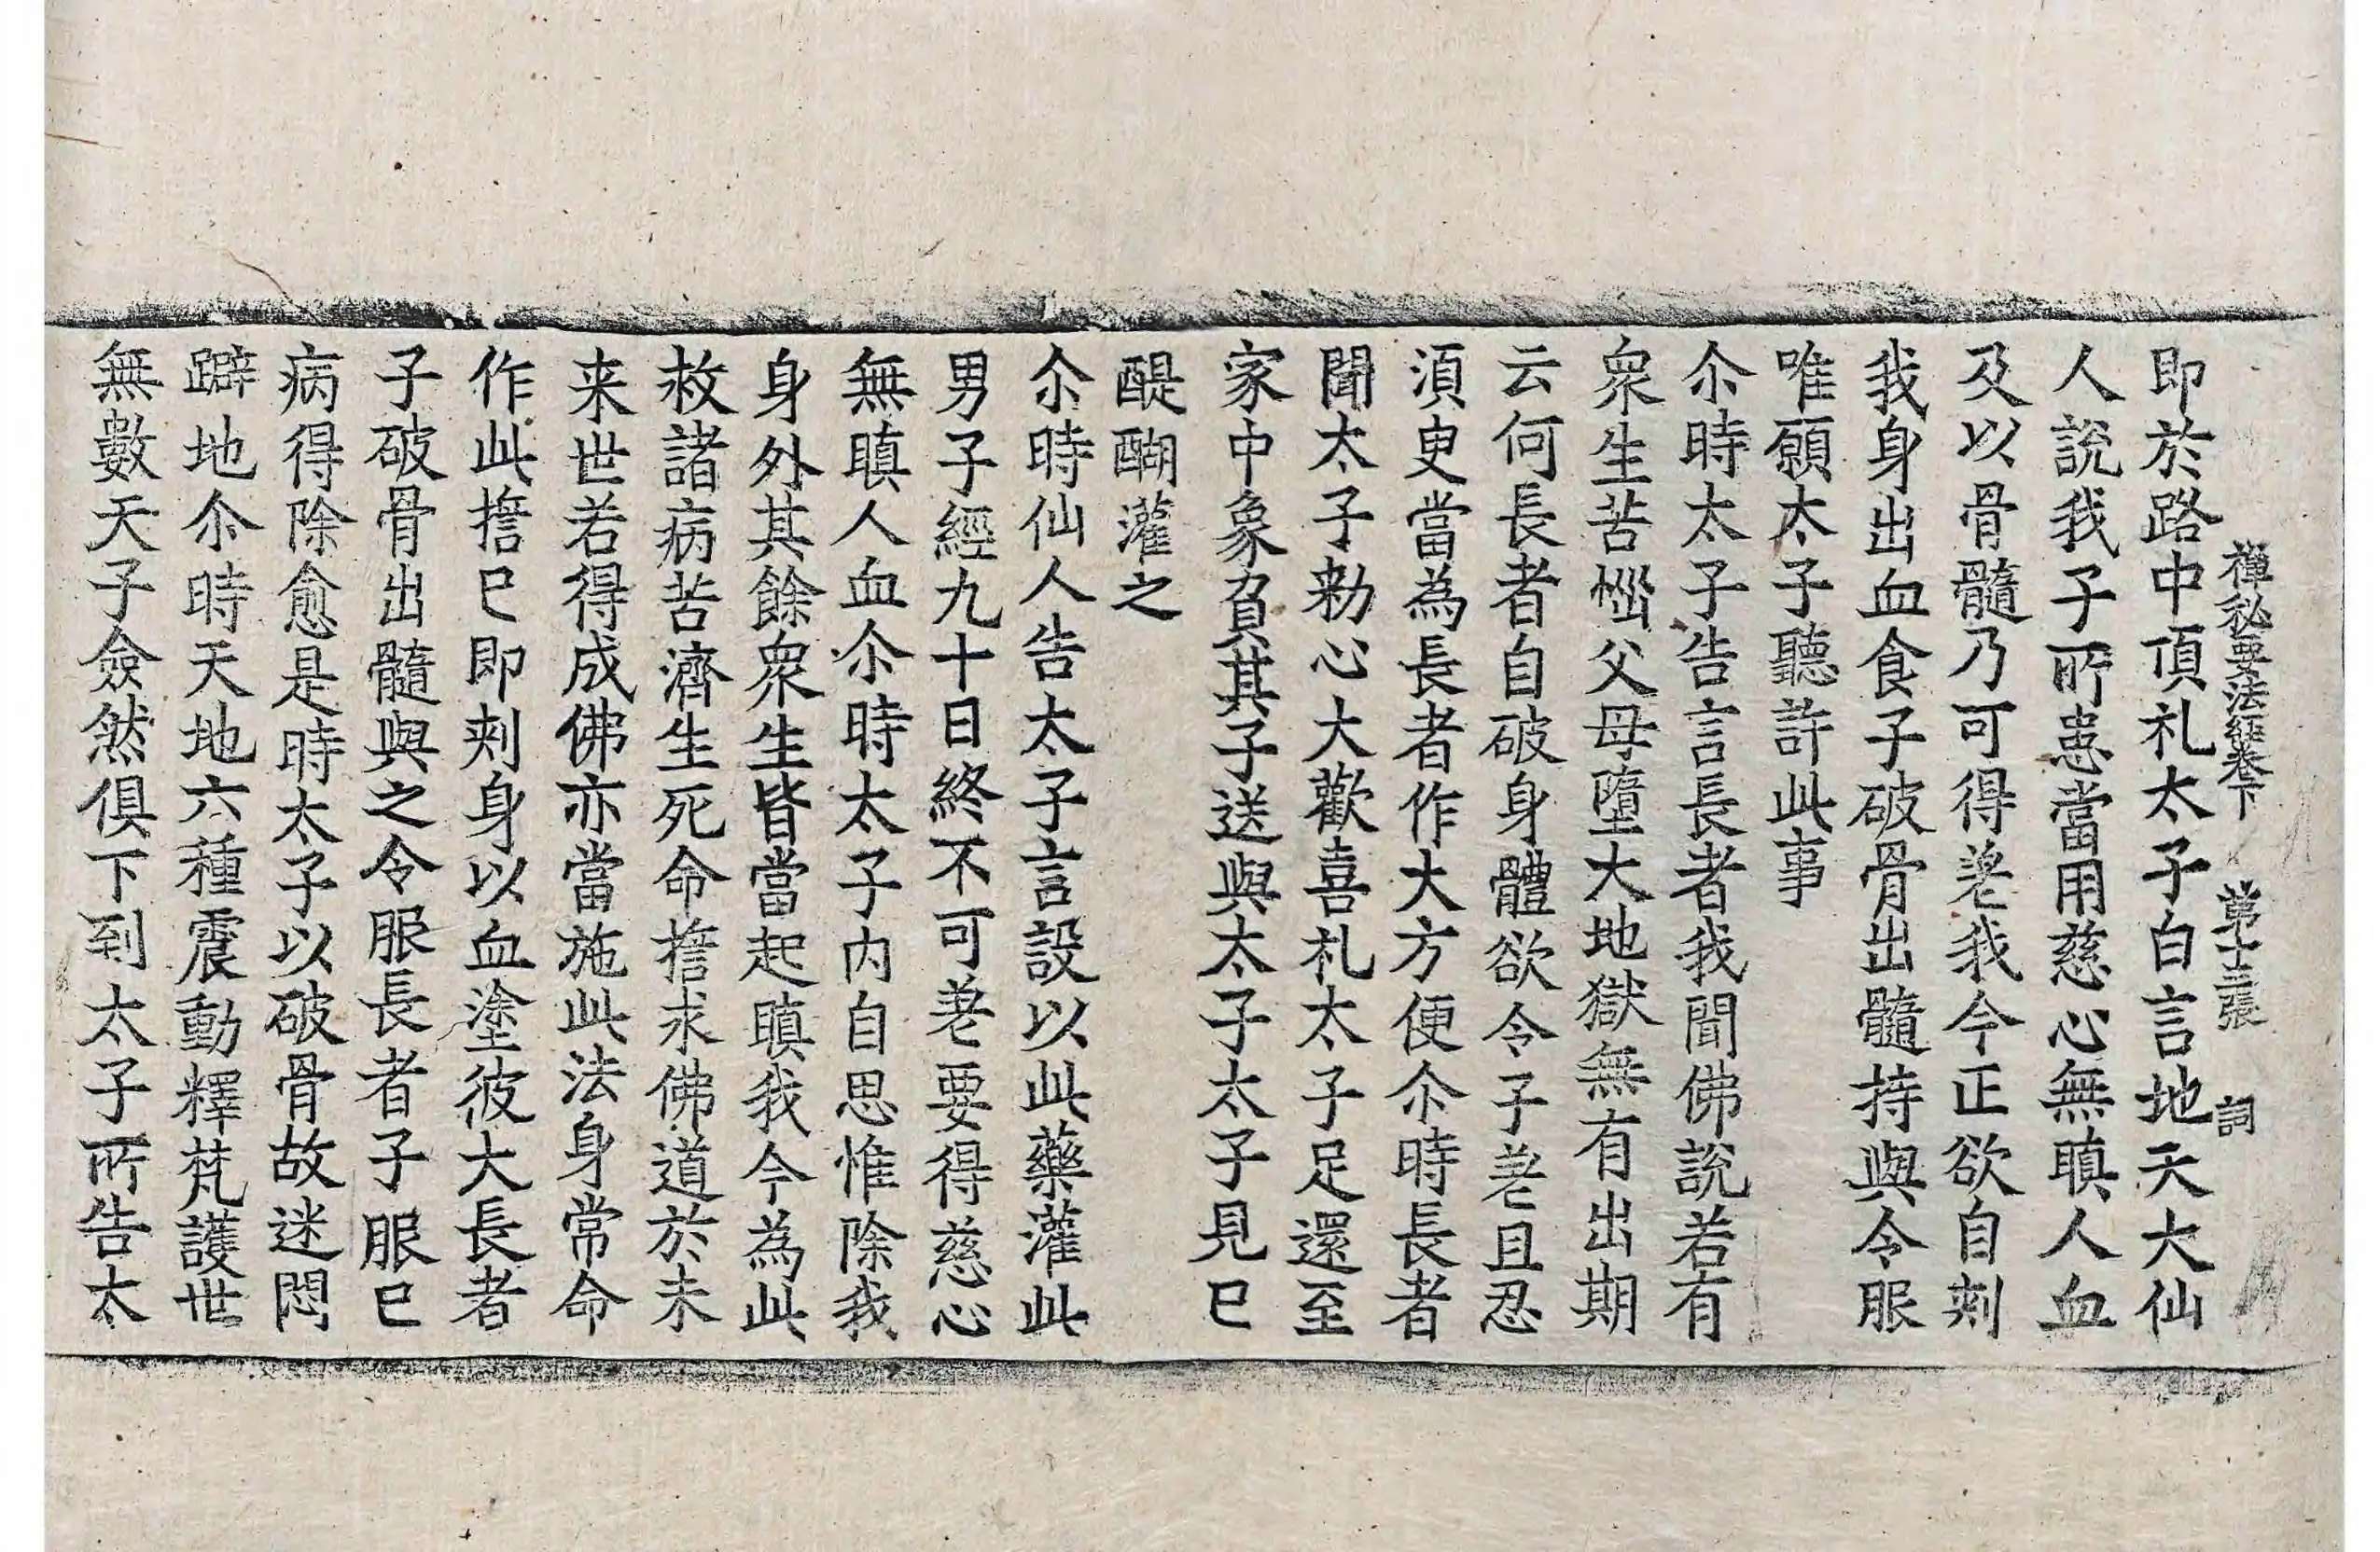 禪秘要法經卷下　第十三張　詞
即於路中頂礼太子白言地天大仙
人說我子所患當用慈心無瞋人血
及以骨髓乃可得差我今正欲自刾
我身出血食子破骨出髓持與令服
唯願太子聽許此事
尒時太子告言長者我聞佛說若有
衆生苦惱父母墮大地獄無有出期
云何長者自破身體欲令子差且忍
須臾當為長者作大方便尒時長者
聞太子勑心大歡喜礼太子足還至
家中象負其子送與太子太子見已
醍醐灌之
尒時仙人告太子言設以此藥灌此
男子經九十日終不可差要得慈心
無瞋人血尒時太子内自思惟除我
身外其餘衆生皆當起瞋我今為此
救諸病苦濟生死命擔求佛道於未
来世若得成佛亦當施此法身常命
作此擔已即刾身以血塗彼大長者
子破骨出髓與之令服長者子服已
病得除愈是時太子以破骨故迷悶
躃地尒時天地六種震動釋梵護世
無數天子僉然俱下到太子所告太